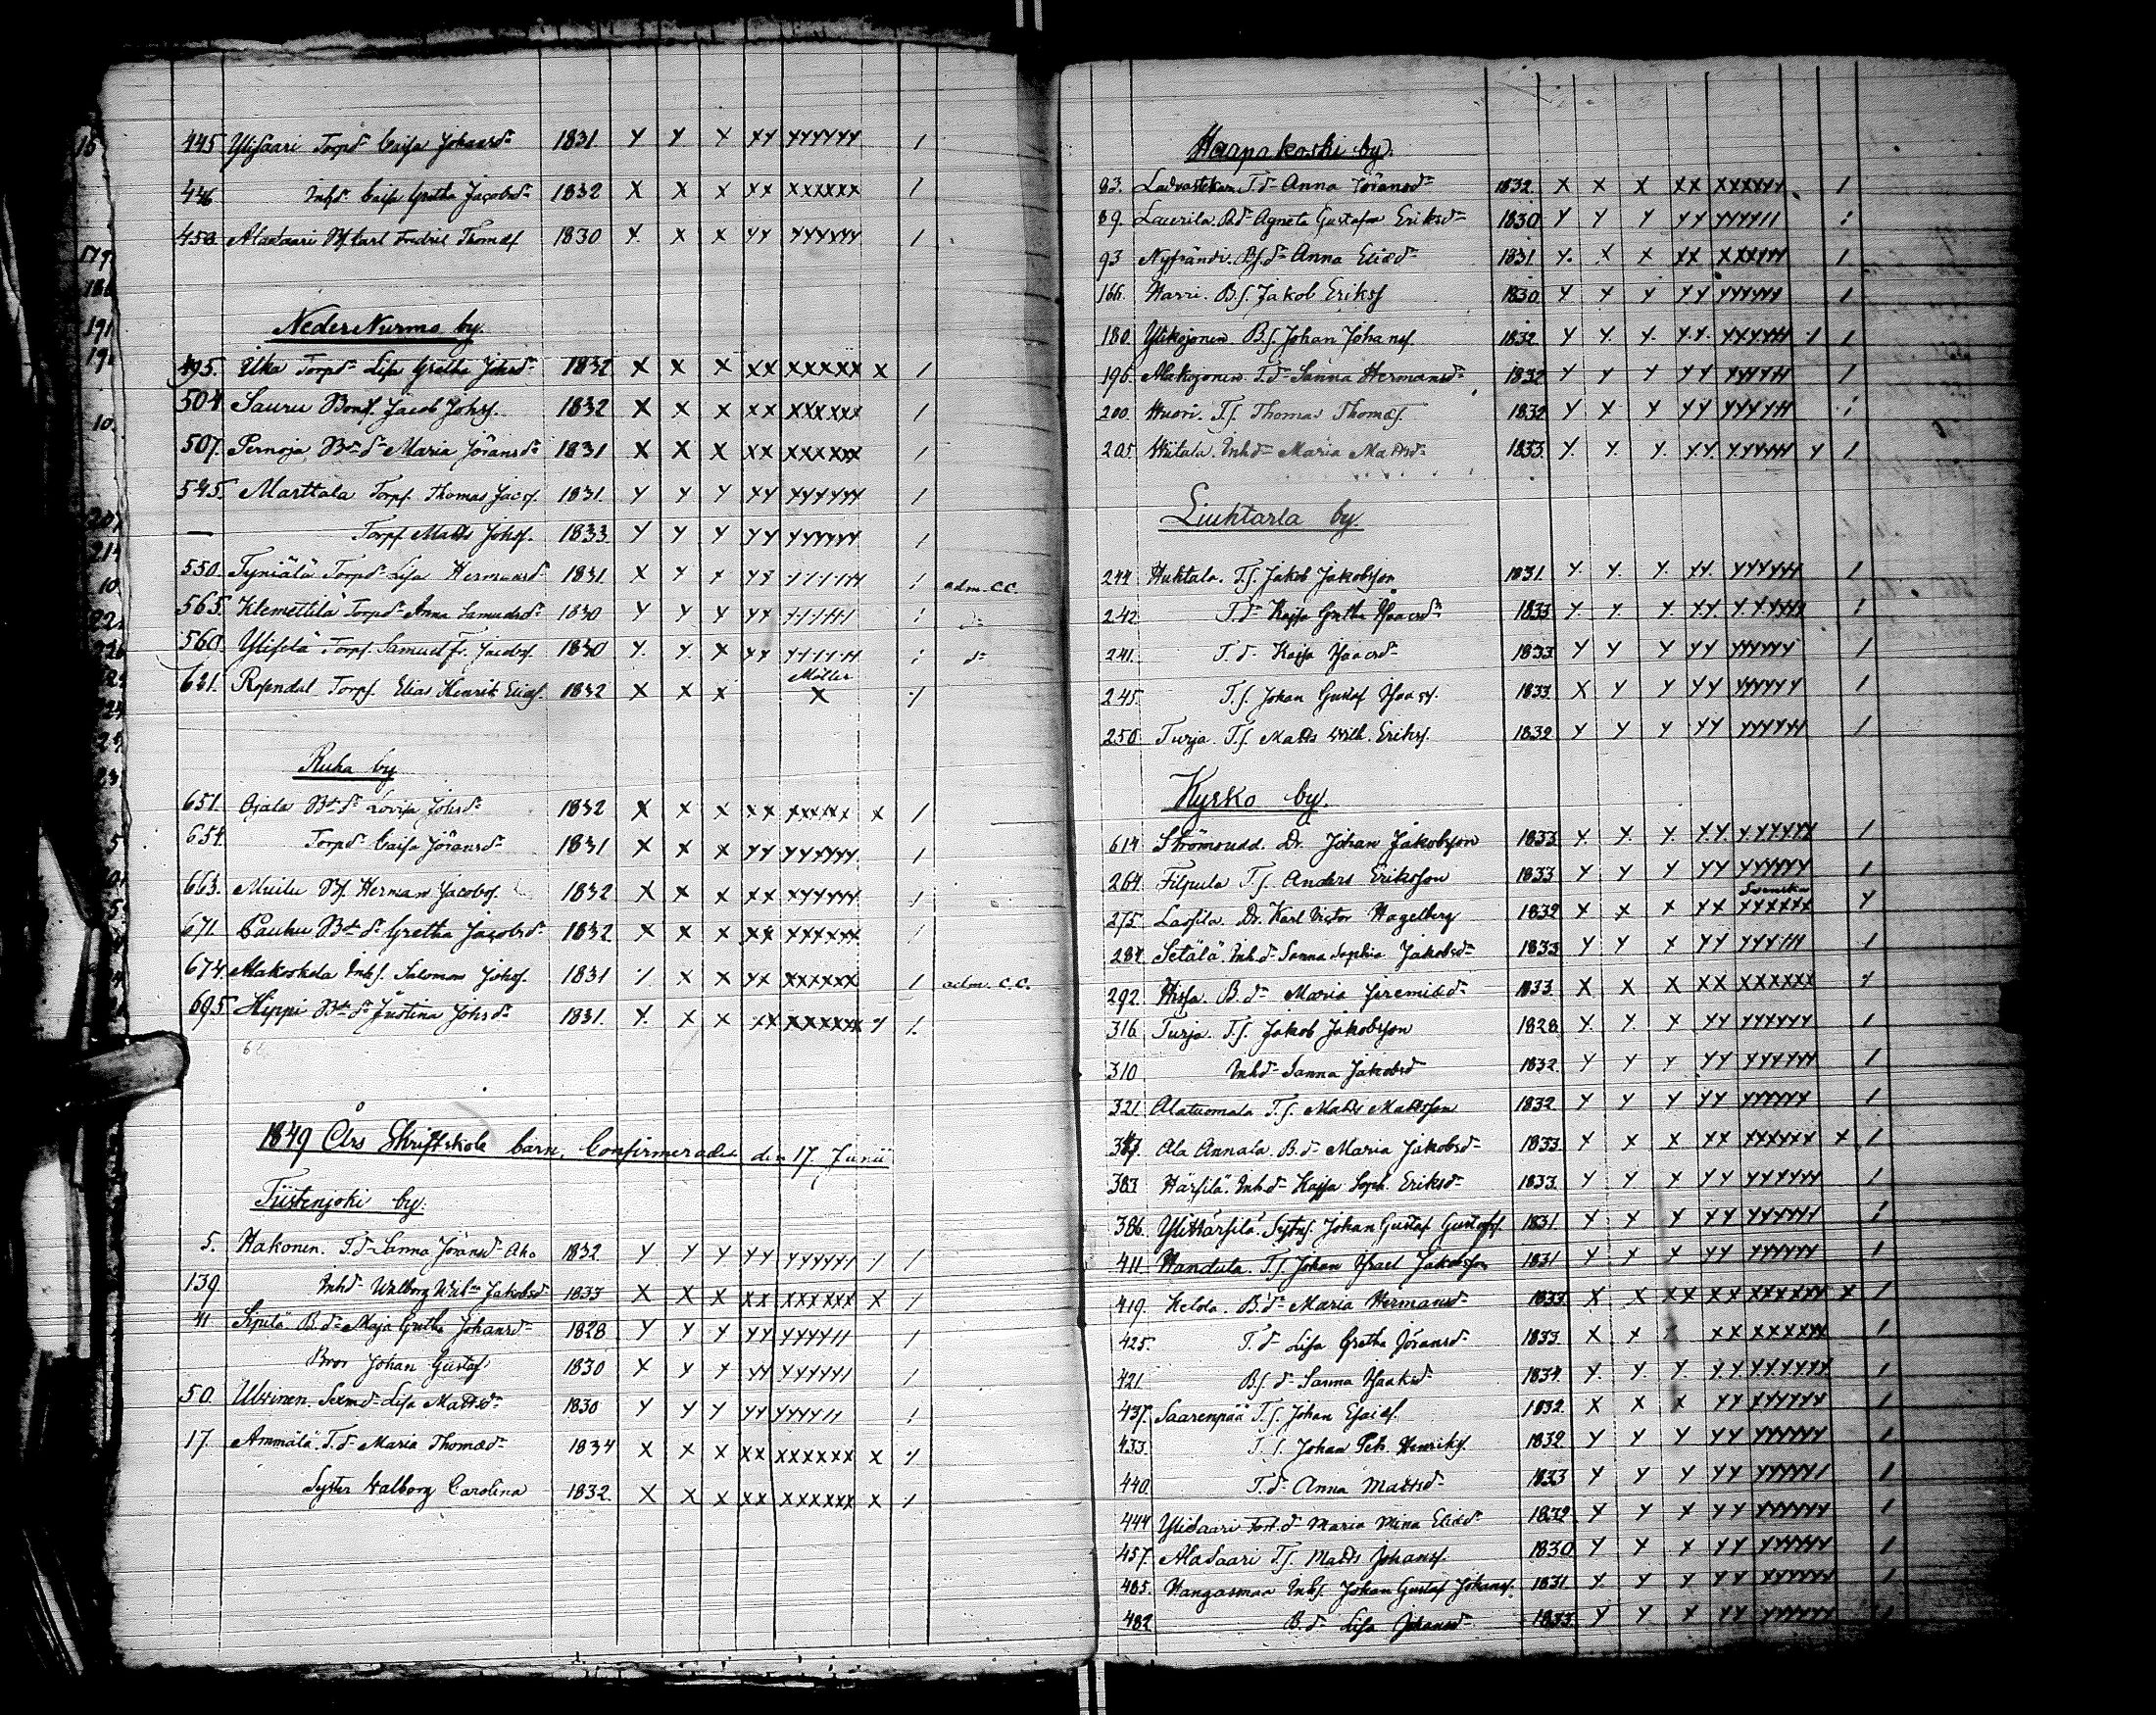 445 Ylisaari Torpd:r Caisa Johansd:r 1831 Y Y X XY YYYYYY /
446 Inhd:r Caisa Gretha Jacobsd:r 1832 X X X XX XXXXXX /
450 Alasaari Carl Fredric Thomæs. 1830 Y. X X YY YYYYYY /
Neder Nurmo by.
495. Uka Torpd:r Lisa Gretha Johsd:r 1832 X X X XX XXXXXX X /
504 Sauru Bons. Jacob Johss. 1832 X X X XX XXXXXX /
507. Pernoja Bd:r Maria Jöransd:r 1831 X X X XX XXXXXX /
545. Marttala Torps. Thomas Jacss. 1831. Y Y Y XY XYYYYY /
— Torps. Matts Johss. 1833 Y Y Y YY YYYYYY /
550 Tyniälä Torpd:r Lisa Hermansd:r 1831 X Y Y YY YYYYYY / adm. C.C.
565. Klemettilä Torpd:r Anna Samuelsd:r 1830 Y Y Y YY YYYYYY / d:o
560 Ylisilä Torps. Samuel Fr. Jacobss. 1830 Y. Y. X YY YYYYYY / d:o
Möller
621. Rosendal Torps. Elias Henrik Eliæs. 1832 X X X X ·/·
Ruha by
651. Ojala Bd:r Lovisa Johsd:r 1832 X X X XX XXXXXX X /
654. Torpd:r Caisa Jöransd:r 1831 X X X YY YYYYYY /
663. Muilu Bs. Herman Jacobss. 1832 X X X XX XYYYYY /
671. Pauhu Bd:r Gretha Jacobsd:r 1832 X X X XX XXXXXX /
674. Alakoskela Inhs. Salomon Johss. 1831 ·/· X X YX XXXXXX / adm. C.C.
695. Hippi Bd:r Justina Johsd:r 1831. Y. X X XX XXXXXX ·/· /
1849 Års Skriftskole barn, Confirmerades den 17 Junii
Tiistenjoki by.
5. Hakonen. T.d:r Sanna Jöransd:r Aho 1832 Y Y Y YY YYYYYY / /
139. Inhd:r Walborg Wilh:a Jakobsd:r 1833 X X X XX XXXXXX X /
41. Sipilä B.d:r Maja Gretha Johansd:r 1828 Y Y Y YY YYYYYY /
Bror Johan Gustaf 1830 X Y Y YY YYYYYY /
50. Lisa Mattsd:r 1830 Y Y Y YY YYYYYY /
17. Ammälä. T.d:r Maria Thomæd:r 1834 X X X XX XXXXXX X ·/·
Syster Walborg Carolina 1832. X X X XX XXXXXX X ·/·
Haapakoski by.
83. T.d:r Anna Jöransd:r 1832 X X X XX XXXYYY /
89. Laurila. Bd:r Agneta Gustafva Eriksd:r 1830 Y Y Y YY YYYYYY /
93 Nyfrändi. Bs.d:r Anna Eliæd:r 1831 Y. X X XX XXXYYY /
166. Harri. B.s. Jakob Erikss. 1830 Y Y Y YY YYYYYY /
180. Ylikojonen B.s. Johan Johanss. 1832 Y Y. Y. Y.Y. YXYYYY ·/· /
196. Alakojonen T.d:r Sanna Hermansd:r 1832 Y Y Y YY YYYYYY /
200. Huori. T.s. Thomas Thomæs. 1832 Y X Y YY YYYYYY /
205 Hiitala. Inhd:r Maria Mattsd:r 1833. Y. Y. Y. Y.Y. YYYYYY Y /
Liuhtarla by
244 Huhtala. T.s. Jakob Jakobsson 1831. Y Y. Y. YY. YYYYYY /
242. T.d:r Kajsa Gretha Isaacsd:r 1833 Y. Y. Y. YY. YYYYYY /
241. T.d:r Kajsa Isaacsd:r 1833 Y Y Y YY YYYYYY /
245. T.s. Johan Gustaf Isaacss. 1833. X Y Y YY YYYYYY /
250. Turja. T.s. Matts Wilh. Erikss. 1832 Y Y Y YY YYYYYY /
Kyrko by.
614 Strömsudd. Dr. Johan Jakobsson 1833 Y. Y. Y. Y.Y. YYYYYY /
264. Filpula T.s. Anders Eriksson 1833 Y Y Y YY YYYYYY /
Svenska
275. Lassila. Dr. Karl Victor Hagelberg 1832 X X X YX YYXXXX Y
284. Setälä. Inhd:r Sanna Sophia Jakobsd:r 1833 Y Y X YY YYYYYY /
292. Hissa. B.d:r Maria Jeremiæd:r 1833 X X X XX XXXXXX ·/·
316. Turja. T.s. Jakob Jakobsson 1828 Y. Y. X YY YYYYYY /
310 Inhd:r Sanna Jakobsd:r 1832. Y Y Y YY YYYYYY /
321. Alatuomala T.s. Matts Mattsson 1832 Y Y Y YY YYYYYY /
347. Ala Annala. B.d:r Maria Jakobsd:r 1833. Y X X YX XYXXXX X /
383. Härsilä. Inhd:r Kajsa Soph. Eriksd:r 1833. Y Y X YY YYYYYY /
386. Ylihärsilä. Johan Gustaf Gustafss. 1831. Y Y Y YY YYYYYY /
411. Handula. T.s. Johan Israel Jakobsson 1831 Y X X YY YYYYYY /
419. Kelda. B.d:r Maria Hermansd:r 1833 X X XX XX XXXXXX X /
425. T.d:r Lisa Gretha Jöransd:r 1833. X X XX XXXXXX /
421. B.s.d:r Sanna Isaksd:r 1834. Y. Y. Y. Y.Y. YYYYYY /
437. Saarenpää T.s. Johan Esaiæs. 1832. X X X YY XYYYYY /
433. T.s. Johan Petr. Henrikss. 1832. Y Y Y YY YYYYYY /
440. T.d:r Anna Mattsd:r 1833 Y Y Y YY YYYYYY /
444 Ylisaari Maria Mina Eliæd:r 1832 Y Y X YY YYYYYY /
457. Alasaari T.s. Matts Johanss. 1830 Y Y X YY YYYYYY /
485. Hangasmaa Inhs. Johan Gustaf Johanss. 1831. Y. Y Y YY YYYYYY /
482 B.d:r Lisa Johansd:r 1833. Y Y X YY YYYYYY /